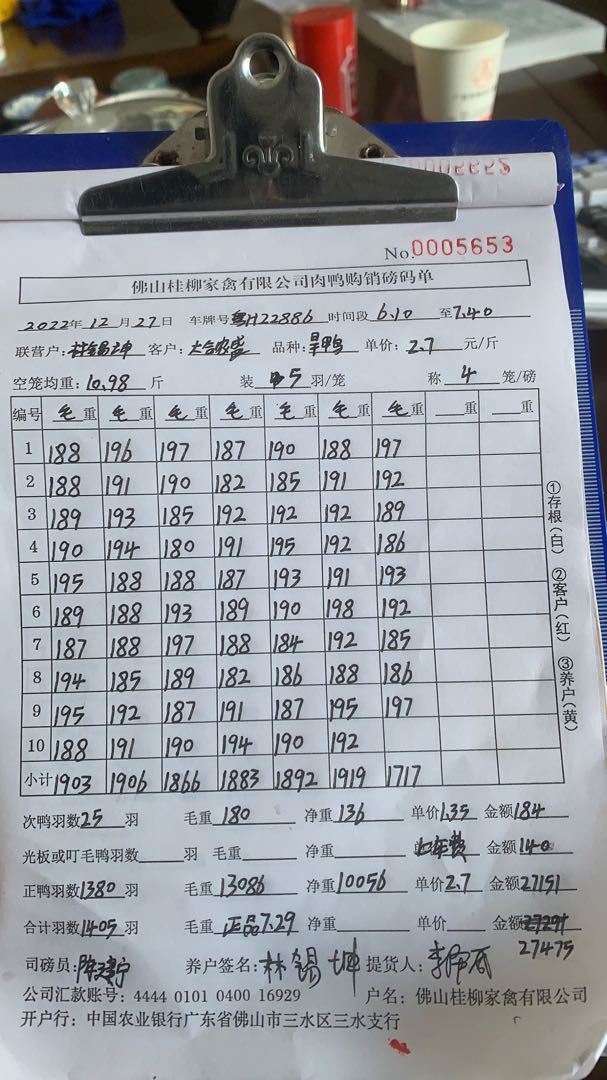 No.0005653
佛山桂柳家禽有限公司肉鸭购销磅码单
2022年12月27日 车牌号粤H22886 时间段6.10至7.40
联营户:林锡坤 客户: 品种:旱鸭 单价:2.7元/斤
空笼均重:10.98斤 装5羽/笼 称4笼/磅
编号 毛重 毛重 毛重 毛重 毛重 毛重 毛重 重 重
1 188 196 197 187 190 188 197
2 188 191 190 182 185 191 192
3 189 193 185 192 192 192 189
4 190 194 180 191 195 192 186
5 195 188 188 187 193 191 193
6 189 188 193 189 190 198 192
7 187 188 197 188 184 192 185
8 194 185 189 182 186 188 186
9 195 192 187 191 187 195 197
10 188 191 190 194 190 192
小计 1903 1906 1866 1883 1892 1919 1717
①存根(白) ②客户(红) ③养户(黄)
次鸭羽数25羽 毛重180 净重136 单价1.35 金额184
光板或叮毛鸭羽数 羽 毛重 净重 上车费 金额140
正鸭羽数1380羽 毛重13086 净重10056 单价2.7 金额27151
合计羽数1405羽 毛重正品7.29 净重 单价 金额
27475
司磅员: 养户签名:林锡坤 提货人:
公司汇款账号:4444 0101 0400 16929 户名:佛山桂柳家禽有限公司
开户行:中国农业银行广东省佛山市三水区三水支行